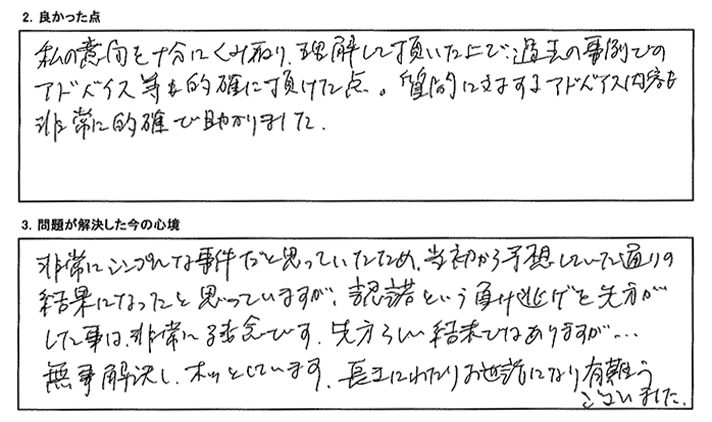 2. 良かった点
私の意向を十分にくみ取り、理解して頂いた上で、過去の事例での
アドバイス等も的確に頂けた点。質問に対するアドバイス内容も
非常に的確で助かりました.
3. 問題が解決した今の心境
非常にシンプルな事件だと思っていたため、当初から予想していた通りの
結果になったと思っていますが、認諾という負け逃げを先方が
した事は、非常に残念です。先方らしい結末ではありますが…
無事解決し、ホッとしています。長きにわたりお世話になり有難う
ございました.